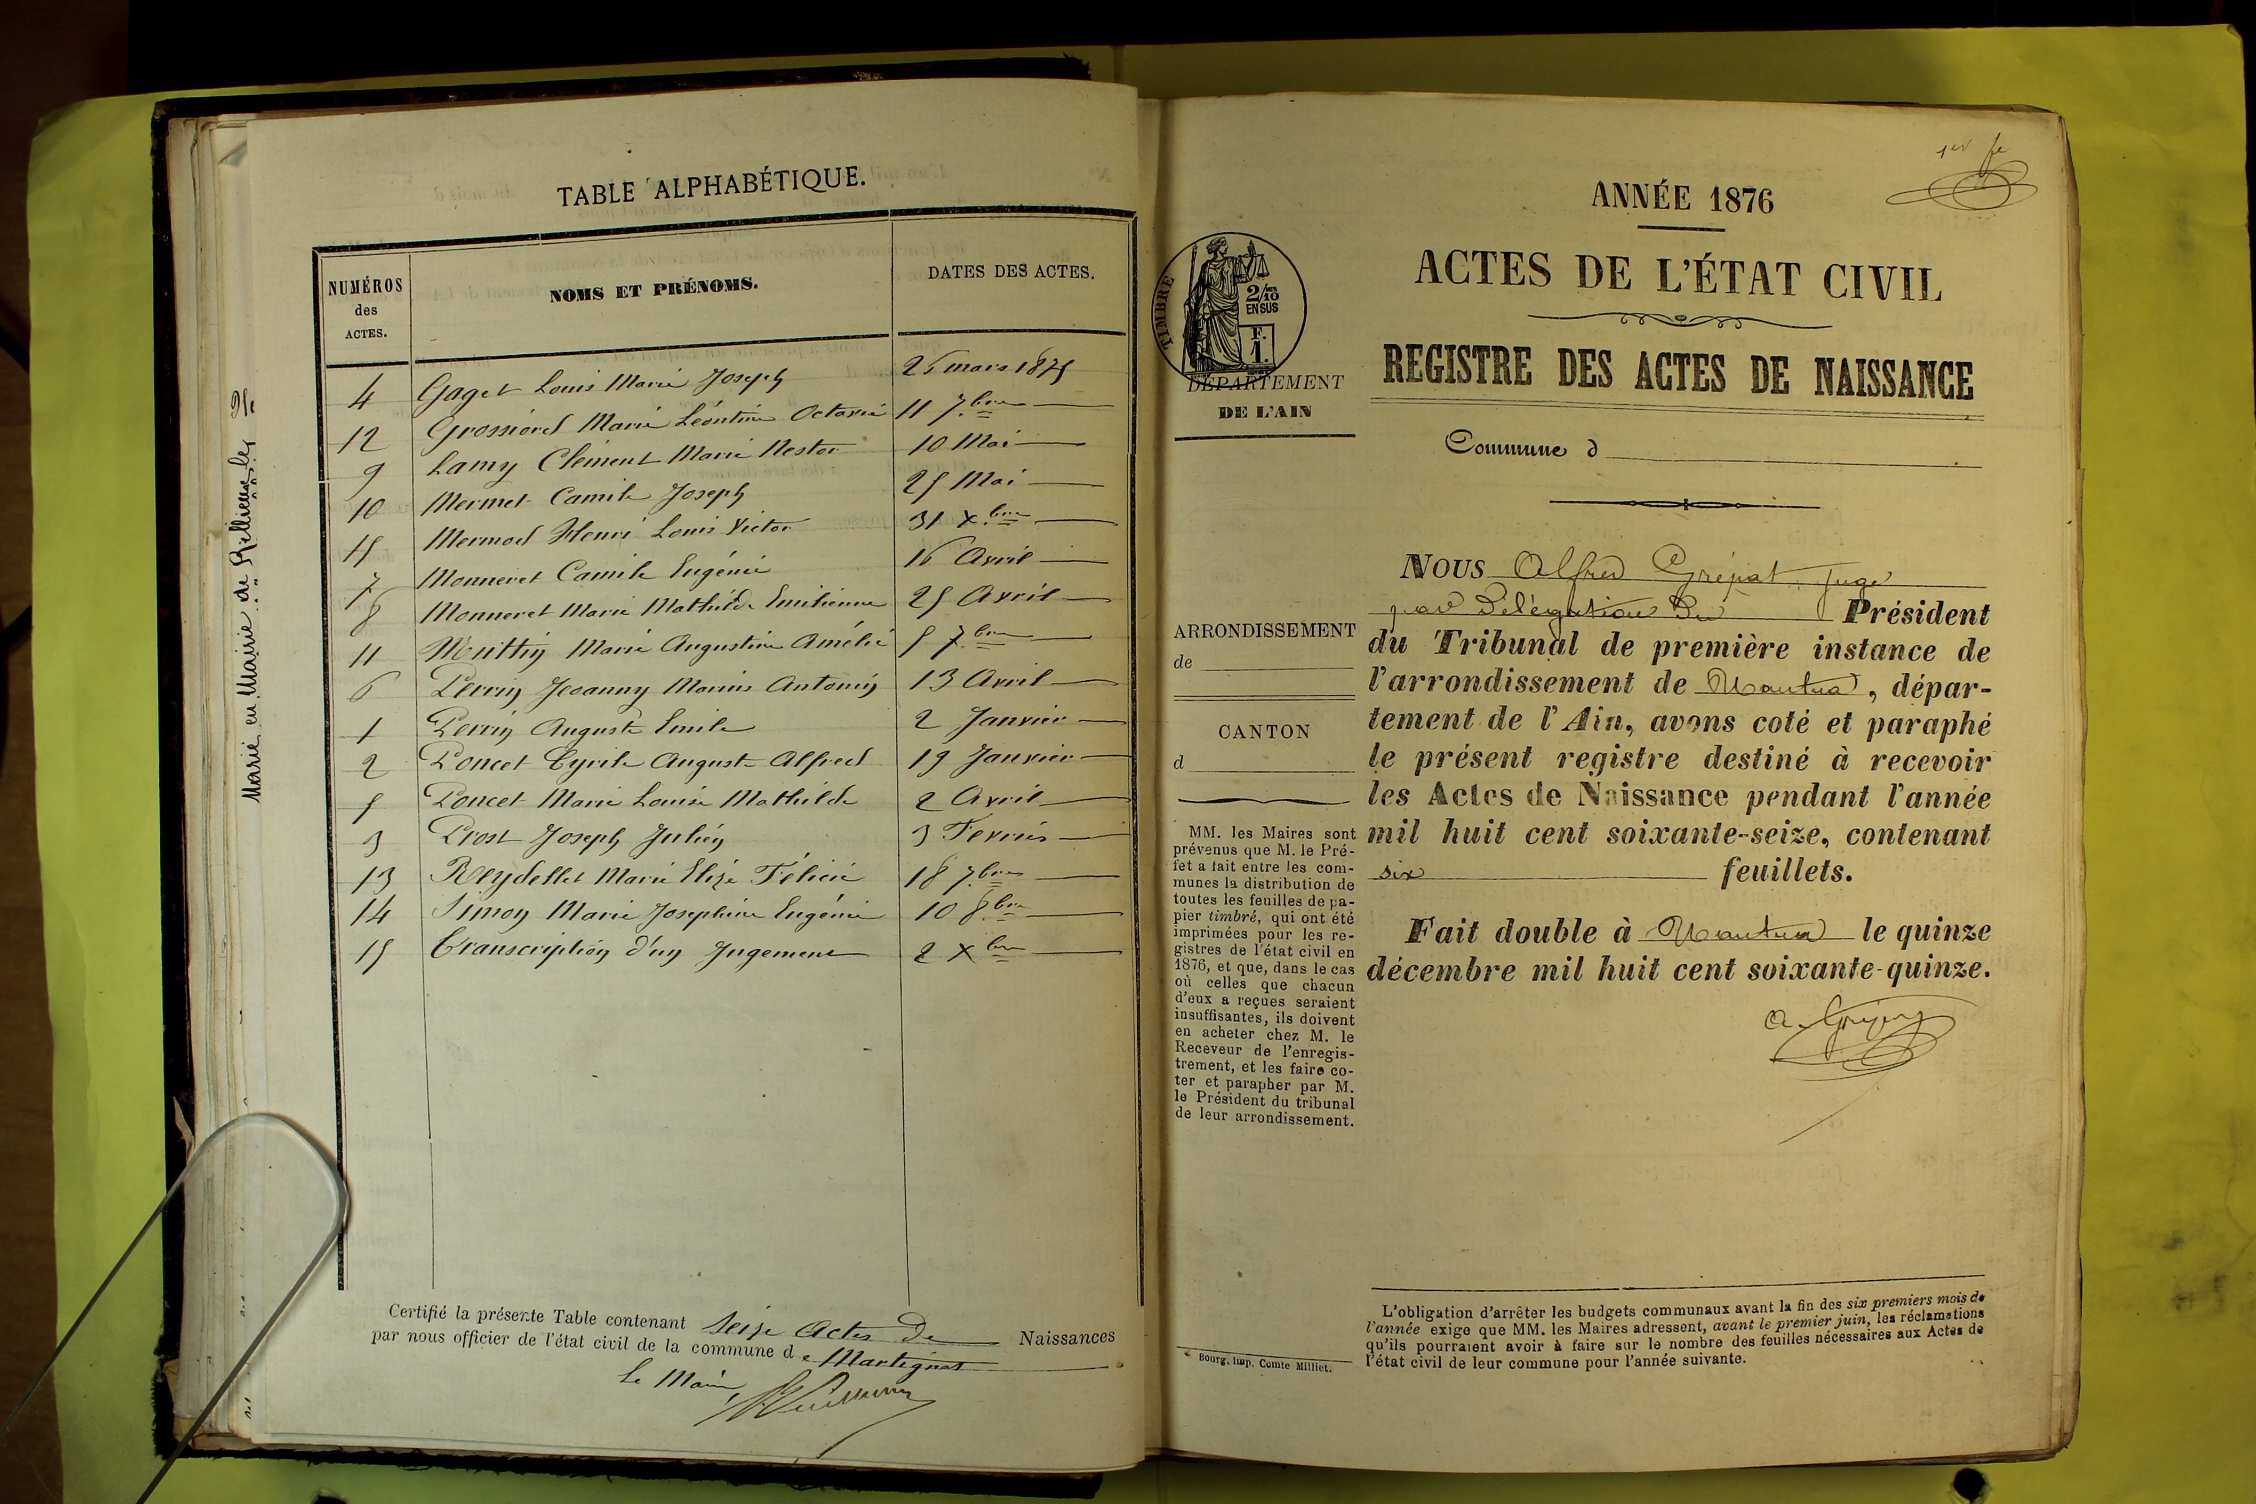 Marié en Mairie de Rillieux les
TABLE ALPHABÉTIQUE.
NUMÉROS
des
ACTES.
NOMS ET PRÉNOMS.
DATES DES ACTES.
4 Gaget Louis Marie Joseph 26 mars 1875
12 Grossiord Marie Léontine Octavie 11 7.bre
9 Lamy Clément Marie Nestor 10 Mai
10 Mermet Camile Joseph 25 Mai
15 Mermod Henri Louis Victor 31 X.bre
7 Monneret Camile Eugénie 16 Avril
8 Monneret Marie Mathilde Emilienne 25 Avril
11 Marie Augustine Amélie 5 7.bre
6 Perrin Jeoanny Marius Antonin 13 Avril
1 Perrin Auguste Emile 2 Janvier
2 Poncet Cyrile Auguste Alfred 19 Janvier
5 Poncet Marie Louise Mathilde 2 Avril
3 Prost Joseph Julien 3 Fevrier
13 Reydellet Marie Elize Félicie 18 7.bre
14 Simon Marie Joséphine Eugénie 10 8.bre
15 Transcription d'un Jugement 2 X.bre
Certifié la présente Table contenant Seize Actes De Naissances
par nous officier de l'état civil de la commune de Martignat
Le Maire
1er fe
ANNÉE 1876
ACTES DE L'ÉTAT CIVIL
REGISTRE DES ACTES DE NAISSANCE
TIMBRE
2/10
EN SUS
F.
1.
DÉPARTEMENT
DE L'AIN
Commune d
ARRONDISSEMENT
de
CANTON
d
MM. les Maires sont
prévenus que M. le Pré-
fet a fait entre les com-
munes la distribution de
toutes les feuilles de pa-
pier timbré, qui ont été
imprimées pour les re-
gistres de l'état civil en
1876, et que, dans le cas
où celles que chacun
d'eux a reçues seraient
insuffisantes, ils doivent
en acheter chez M. le
Receveur de l'enregis-
trement, et les faire co-
ter et parapher par M.
le Président du tribunal
de leur arrondissement.
Bourg, Imp. Comte Milliet.
NOUS Alfred Grépat Juge
par Délégation Du Président
du Tribunal de première instance de
l'arrondissement de Nantua, dépar-
tement de l'Ain, avons coté et paraphé
le présent registre destiné à recevoir
les Actes de Naissance pendant l'année
mil huit cent soixante-seize, contenant
six feuillets.
Fait double à Nantua le quinze
décembre mil huit cent soixante-quinze.
L'obligation d'arrêter les budgets communaux avant la fin des six premiers mois de
l'année exige que MM. les Maires adressent, avant le premier juin, les réclamations
qu'ils pourraient avoir à faire sur le nombre des feuilles nécessaires aux Actes de
l'état civil de leur commune pour l'année suivante.